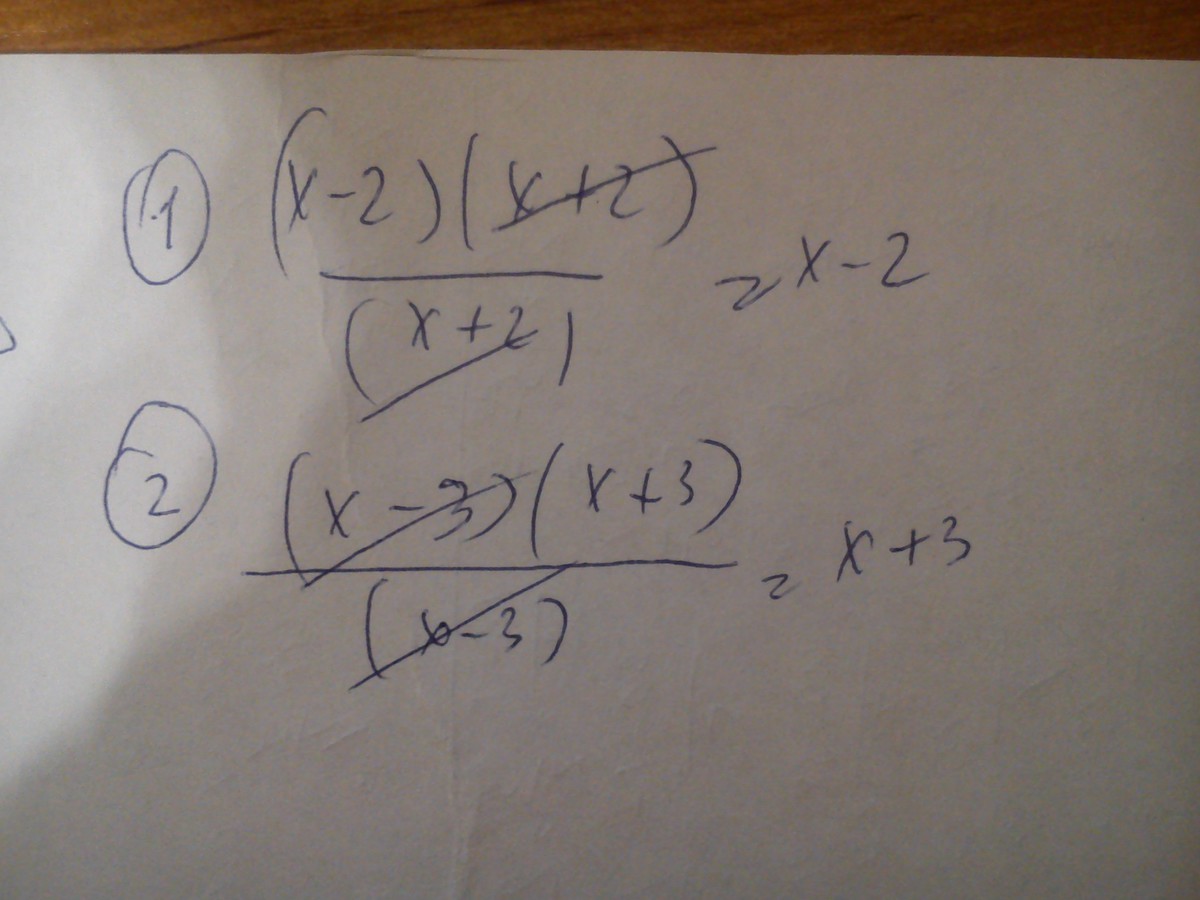 ① (x-2)(x+2)
= x-2
(x+2)
② (x-3)(x+3)
= x+3
(x-3)